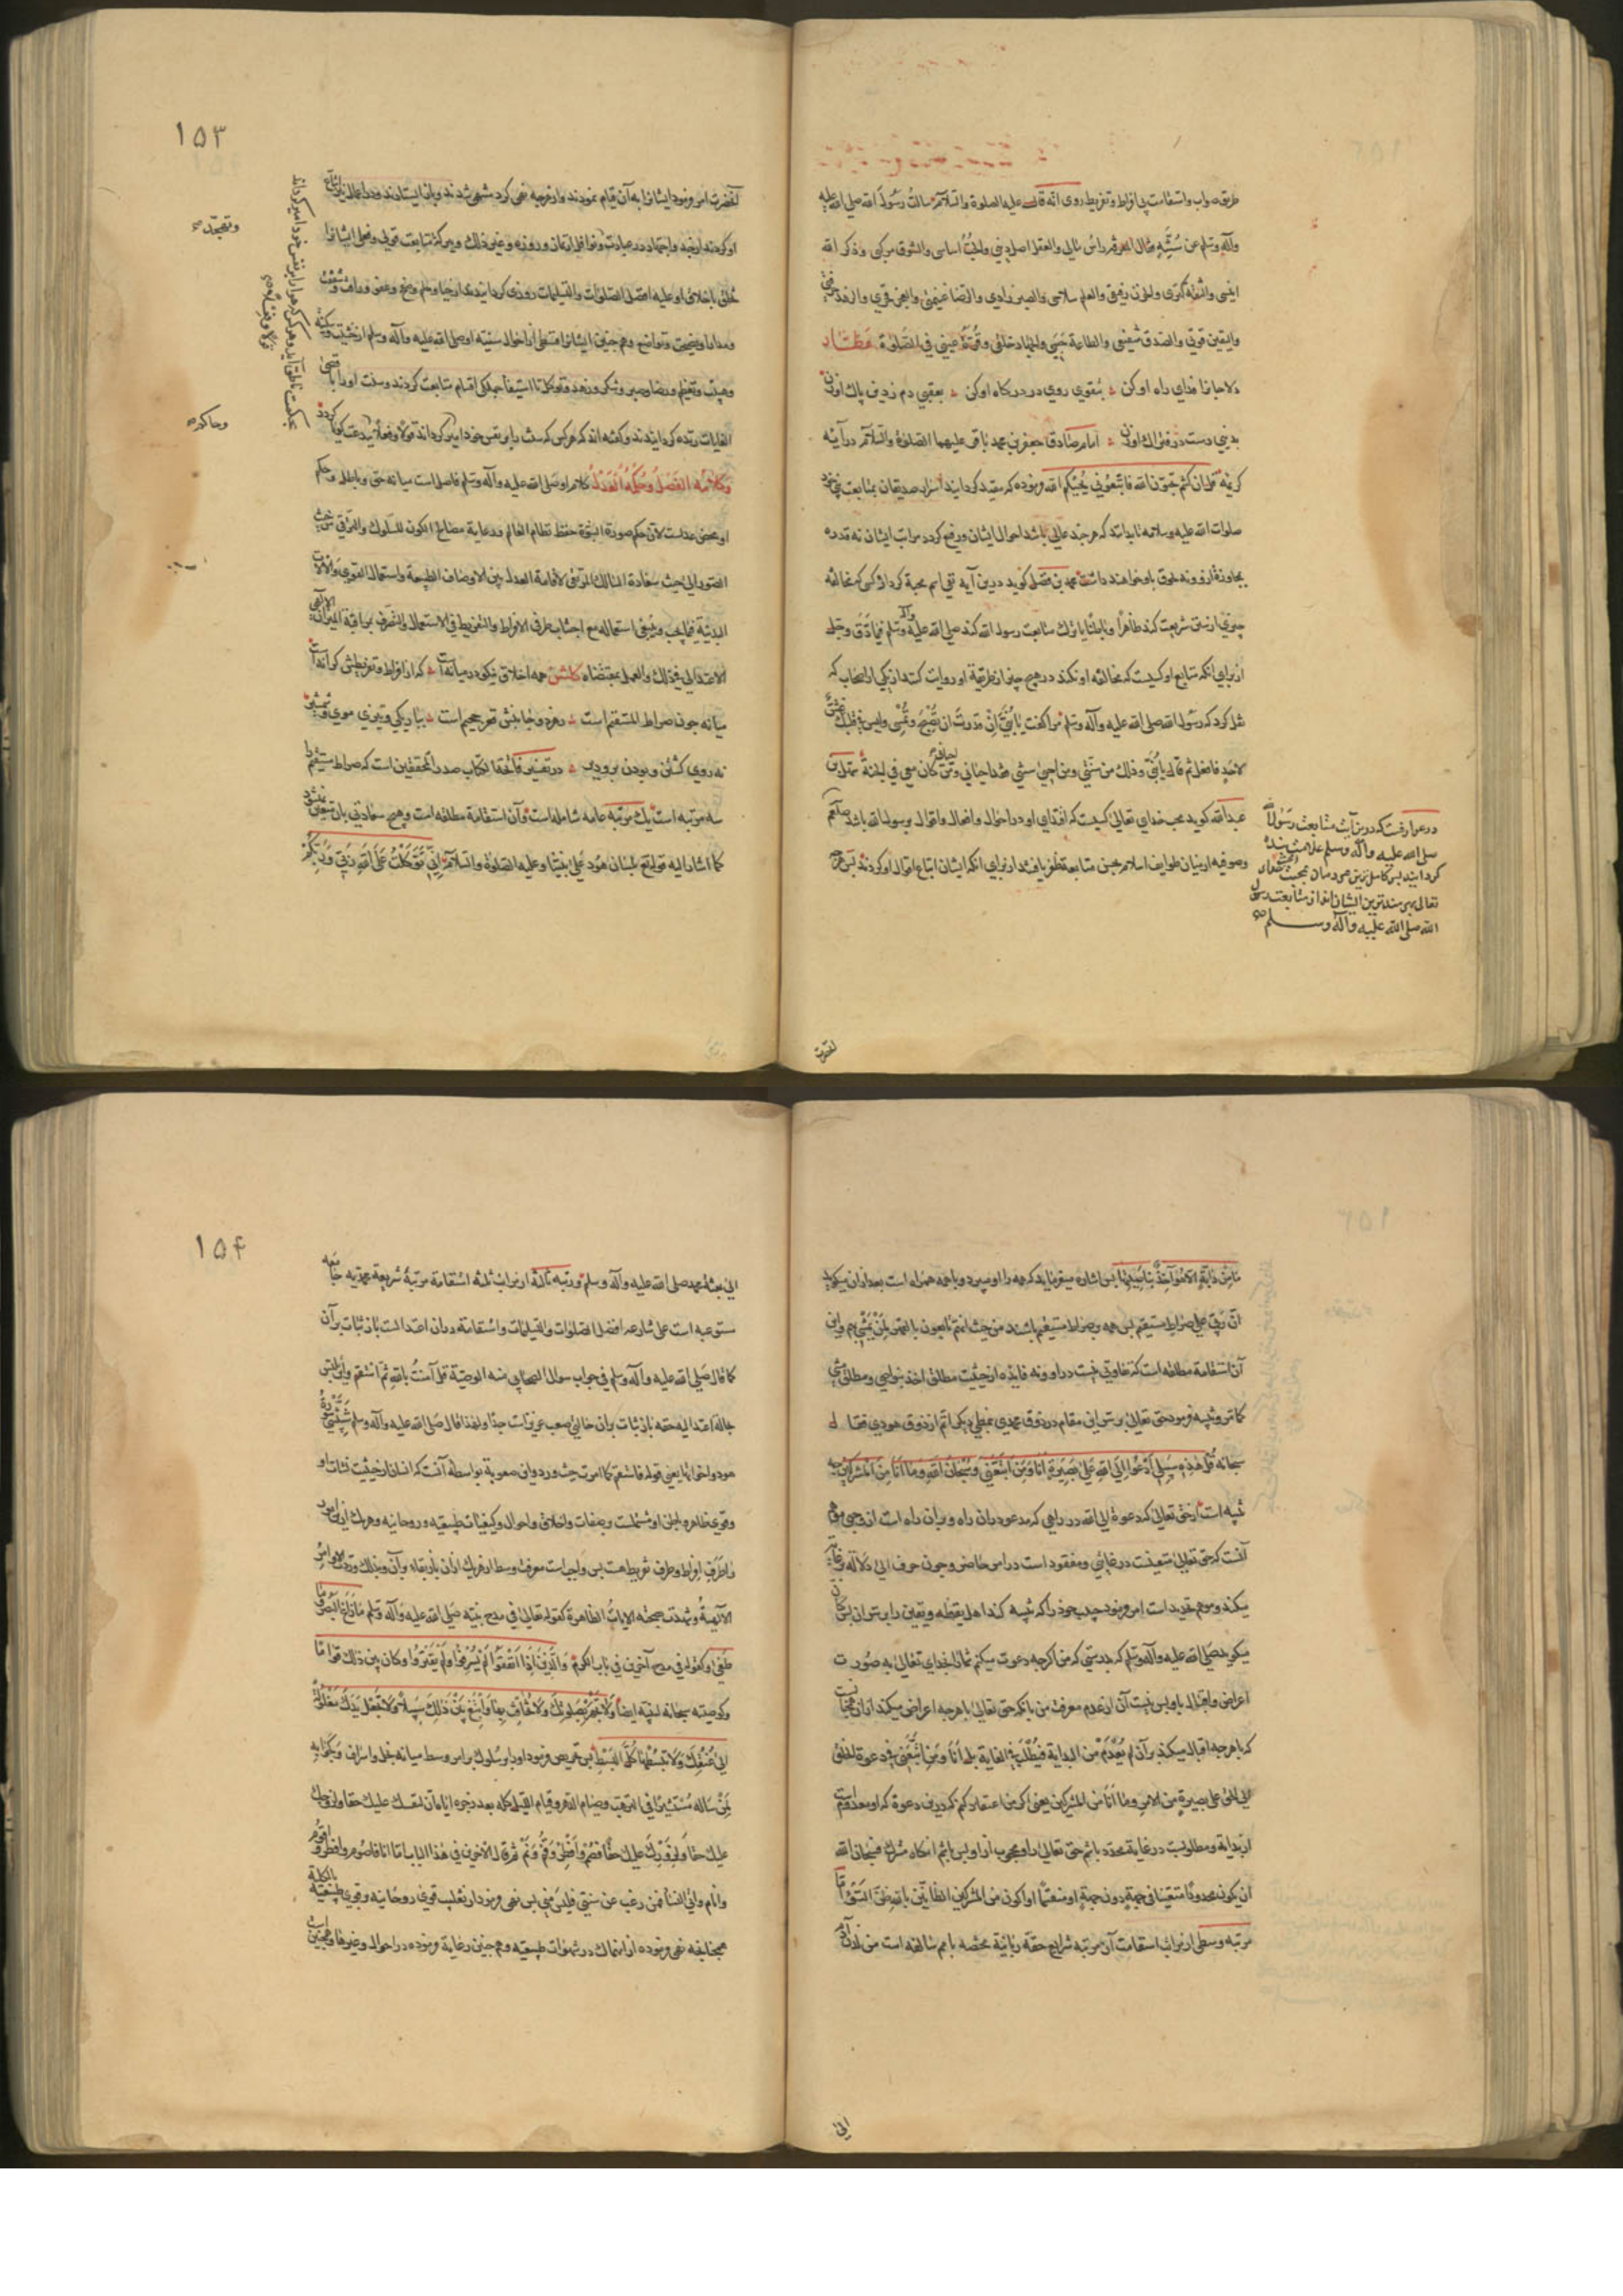 طریق صواب واستقامت بی افراط وتفریط روی انه قال علیه الصلوة والسلام سالت رسول الله صلی الله علیه
وآله وسلم عن سنته فقال المعرفة راس مالی والعقل اصل دینی والحب اساسی والشوق مرکبی وذکر الله
انیسی والثقة کنزی والحزن رفیقی والعلم سلاحی والصبر زادی والرضا غنیمتی والعجز فخری والزهد حرفتی
والیقین قوتی والصدق شفیعی والطاعة حسبی والجهاد خلقی وقرة عینی فی الصلوة عطار
دلا جانرا فدای راه او کن بتقوی روی در درگاه او کن بعقبی دم زدین پاک او زن
بدینی دست در فتراک او زن امام صادق جعفر بن محمد باقر علیهما الصلوة والسلام در آیه
کریمه قل ان کنتم تحبون الله فاتبعونی یحببکم الله فرموده که مقید گردانید اسرار صدیقان بمتابعت نبی خود
صلوات الله علیه وسلامه تا بدانند که هرچند عالی باشد احوال ایشان ورفیع گردد مراتب ایشان نه قدرت
مجاوزة ازو ونه لحوق باو خواهند داشت محمد بن فضل گوید درین آیه نفی اسم محبة کرد از کسی که مخالفت
چیزی از سنن شریعت کند ظاهرا وباطنا یا ترک متابعت رسول الله کند صلی الله علیه وآله وسلم فیما دق وجل
از برای انکه متابع او کسیست که مخالفت او نکند در هیچ چیز از طریقة او روایت کنند از یکی از اصحاب که
نقل کرد که رسول الله صلی الله علیه وآله وسلم مرا گفت یا بنی ان قدرت ان تصبح وتمسی ولیس فی قلبک غش
لاحد فافعل ثم قال یا بنی وذلک من سنتی ومن احیی سنتی فقد احیانی ومن احیانی کان معی فی الجنة سهل بن
عبدالله گوید محب خدای تعالی کسیست که اقتدای او در احوال وافعال واقوال برسول الله باشد صلعم
وصوفیه از میان طوایف اسلام بحسن متابعة ظفر یافته اند از برای انکه ایشان اتباع اقوال او کردند پس هرچه
در عوارفست که درین آیت متابعت رسول الله
صلی الله علیه وآله وسلم علامت محبت بنده
گردانید پس کامل ترین مردمان بمحبت خدای
تعالی بهره مندترین ایشان اند از متابعت رسول
الله صلی الله علیه وآله وسلم
١٥٣
آنحضرت امر فرمود ایشانرا به آن قیام نمودند واز هرچه نهی کرد منتهی شدند وباز ایستادند ودر اعمال نیز اتباع
او کردند از جد واجتهاد در عبادت ونوافل از نماز وروزه وغیر ذلک وببرکة متابعت قولی وفعلی ایشانرا
تخلق باخلاق او علیه افضل الصلوات والتسلیمات روزی گردانیدند از حیا وحلم وصفح وعفو ورافت وشفقت
ومدارا ونصیحت وتواضع وهم چنین ایشانرا قسطی از احوال سنیه او صلی الله علیه وآله وسلم از خشیت وسکینه
وهیبت وتعظیم ورضا وصبر وشکر وزهد وتوکل تا استیفا جملگی اقسام متابعت کردند وسنت او را باقصی
الغایات زنده گردانیدند وگفته اند که هر کس که سنت را بر نفس خود امیر گرداند قولا وفعلا
وکلامه الفصل وحکمه العدل کلام او صلی الله علیه وآله وسلم فاصل است میانه حق وباطل وحکم
او محض عدالت لان حکم صورة النبوة حفظ نظام العالم ورعایة مصالح الکون للسلوک والترقی من حیث
الصور الی حیث سعادة السالک المرتقی لاقامة العدل بین الاوصاف الطبیعة واستعمال القوی والآلات
البدنیة فیما یجب وینبغی استعماله مع اجتناب طرفی الافراط والتفریط فی الاستعمال والتصرف بمراقبة المیزان الالهی
الاعتدالی فی ذلک والعمل بمقتضاه گلشن همه اخلاق نیکو در میانه است که از افراط وتفریطش کرانه است
میانه چون صراط المستقیم است ز هر دو جانبش قعر جحیم است بباریکی وتیزی موی وشمشیر
نه روی گشتن وبودن برو دیر در تفسیر فاتحة الکتاب صدر المحققین است که صراط مستقیم را
سه مرتبه است یک مرتبه عامه شامله است وآن استقامة مطلقه است وهیچ سعادتی بان متعلق نمیشود
کما اشار الیه قوله تع بلسان هود علی نبینا وعلیه الصلوة والسلام انی توکلت علی الله ربی وربکم
ما من دابة الا هو آخذ بناصیتها پس اشاره میفرماید که همه را او میبرد وبا همه همراه است بعد از ان میگوید
ان ربی علی صراط مستقیم پس همه بر صراط مستقیم باشند من حیث انهم تابعون بالقهر لمن یمشی بهم واین
آن استقامة مطلقه است که تفاوتی نیست در او ونه فایده از حیثیت مطلق اخذ بنواصی ومطلق مشی
کما مر وتنبیه فرمود حق تعالی بر سر این مقام در ذوق محمدی بنمطی دیگر اتم از ذوق هودی فقال
سبحانه قل هذه سبیلی ادعوا الی الله علی بصیرة انا ومن اتبعنی وسبحان الله وما انا من المشرکین
تنبیه است از حق تعالی که دعوة الی الله در راهی که مدعو بدان راه وبران راه است از وجهی موهم
آنست که حق تعالی متعینست در غایتی ومفقود است در امر حاضر وچون حرف الی دلالة بر غایة
میکند وموهم تحدید است امر فرمود حبیب خود را که تنبیه کند اهل یقظه ویقین را بر سر ان پس کانه
میگوید صلی الله علیه وآله وسلم که بدرستی که من اگرچه دعوت میکنم شما را بخدای تعالی به صورت
اعراض واقبال باو پس نیست آن از عدم معرفت من بانکه حق تعالی با هرچه اعراض میکنید از ان
که با هرچه اقبال میکنید بر آن لم یعدم من البدایة فیطلب فی الغایة بل انا ومن اتبعنی فی دعوة الخلق
الی الحق علی بصیرة من الامر وما انا من المشرکین یعنی اگر من اعتقاد کنم که درین دعوة که او مفقود است
از بدایة ومطلوبست در غایة محدد باشم حق تعالی را ومحجوب از او پس باشم انگاه مشرک فسبحان الله
ان یکون محدودا متعینا فی جهة دون جهة او منقسما او اکون من المشرکین الظانین بالله ظن السوء اما
مرتبه وسطی از مراتب استقامت آن مرتبه شرایع حقه ربانیة مختصه بامم سالفه است من لدن آدم
١٥۴
الی بعثة محمد صلی الله علیه وآله وسلم ومرتبه ثالثة از مراتب ثلثه استقامة مرتبة شریعة محمدیه جامعه
مستوعبه است علی شارعه افضل الصلوات والتسلیمات واستقامة در ان اعتدالست باز ثبات بر آن
کما قال صلی الله علیه وآله وسلم فی جواب سوال الصحابی منه الوصیة قل آمنت بالله ثم استقم واین
حالة اعتدالیه حقه باز ثبات بران حالتی صعب عزیزست جدا ولهذا قال صلی الله علیه وآله وسلم شیبتنی سورة
هود واخواتها یعنی قوله فاستقم کما امرت حیث ورد واین صعوبة بواسطه آنست که انسان از حیثیت نشات او
وقوی ظاهره وباطن او مشتملست بر صفات واخلاق واحوال وکیفیات طبیعیه وروحانیه وهر یک ازین امور
را طرف افراط وطرف تفریط هست پس واجب است معرفت وسط از هر یک ازان باز بقاء بر آن وبذلک وردت الاوامر
الالهیة وشهدت بصحته الایات الظاهرة کقوله تعالی فی مدح نبیه صلی الله علیه وآله وسلم ما زاغ البصر وما
طغی وکقوله فی مدح آخرین فی باب الکرم والذین اذا انفقوا لم یسرفوا ولم یقتروا وکان بین ذلک قواما
وکوصیته سبحانه لنبیه ایضا ولا تجهر بصلوتک ولا تخافت بها وابتغ بین ذلک سبیلا ولا تجعل یدک مغلولة
الی عنقک ولا تبسطها کل البسط پس تحریص فرمود او را بر سلوک بر امر وسط میانه بخل واسراف وکجوابه
لمن ساله مستشیرا فی الترهب وصیام الدهر وقیام اللیل کله بعد زجره ایاه ان لنفسک علیک حقا ولزوجک
علیک حقا ولزورک علیک حقا فصم وافطر وقم ونم ثم قال لاخرین فی هذا الباب اما انا فاصوم وافطر واقوم
وانام واتی النساء فمن رغب عن سنتی فلیس منی پس نهی فرمود از تغلیب قوی روحانیه وقوی طبیعیه بالکلیة
همچنانچه نهی فرموده از انهماک در شهوات طبیعیه وهم چنین رعایة فرموده در احوال وغیرها